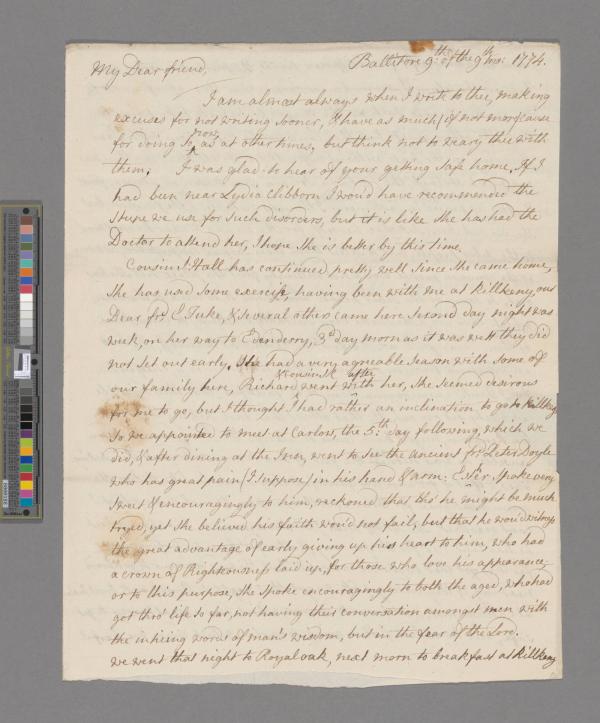 My Dear friend,
Ballitore 9.th of the 9th mo: 1774.
I am almost always when I write to thee, making
excuses for not writing sooner, I have as much (if not more) cause
for doing so now as at other times, but think not to weary thee with
them. I was glad to hear of your getting safe home. If I
had been near Lydia Clibborn I would have recommended the
Stupe we use for such disorders, but it is like she has had the
Doctor to attend her, I hope she is better by this time.
Cousin S. Hall has continued pretty well since she came home,
she has used some exercise, having been with me at Killkeny, our
Dear frd. E Tuke, & several others came here second day night was
week, on her way to Edenderry, 3.d day morn as it was wett they did
not set out early. She had a very agreable season with some of
our family here, Richard & Cousin went with after her, She seemed desirous
for me to go, but I thought I had rather an inclination to go to Killkeny
so we appointed to meet at Carlow, the 5.th day following, which we
did, & after dining at the Inn, went to see the ancient frd Peter Doyle
who has great pain (I suppose) in his hand & arm: E T spoke very
sweet & encouragingly to him, reckoned that tho' he might be much
tryed, yet she believed his faith woud not fail, but that he woud witness
the great advantage of early giving up his heart to him, who had
a crown of Righteousness laid up, for those who love his appearance,
or to this purpose, she spoke encouragingly to both the aged, who had
got thro' life so far, not having their conversation amongst men with
the inticing words of man's wisdom, but in the fear of the Lord.
we went that night to Royal oak, next morn to breakfast at Killkeny